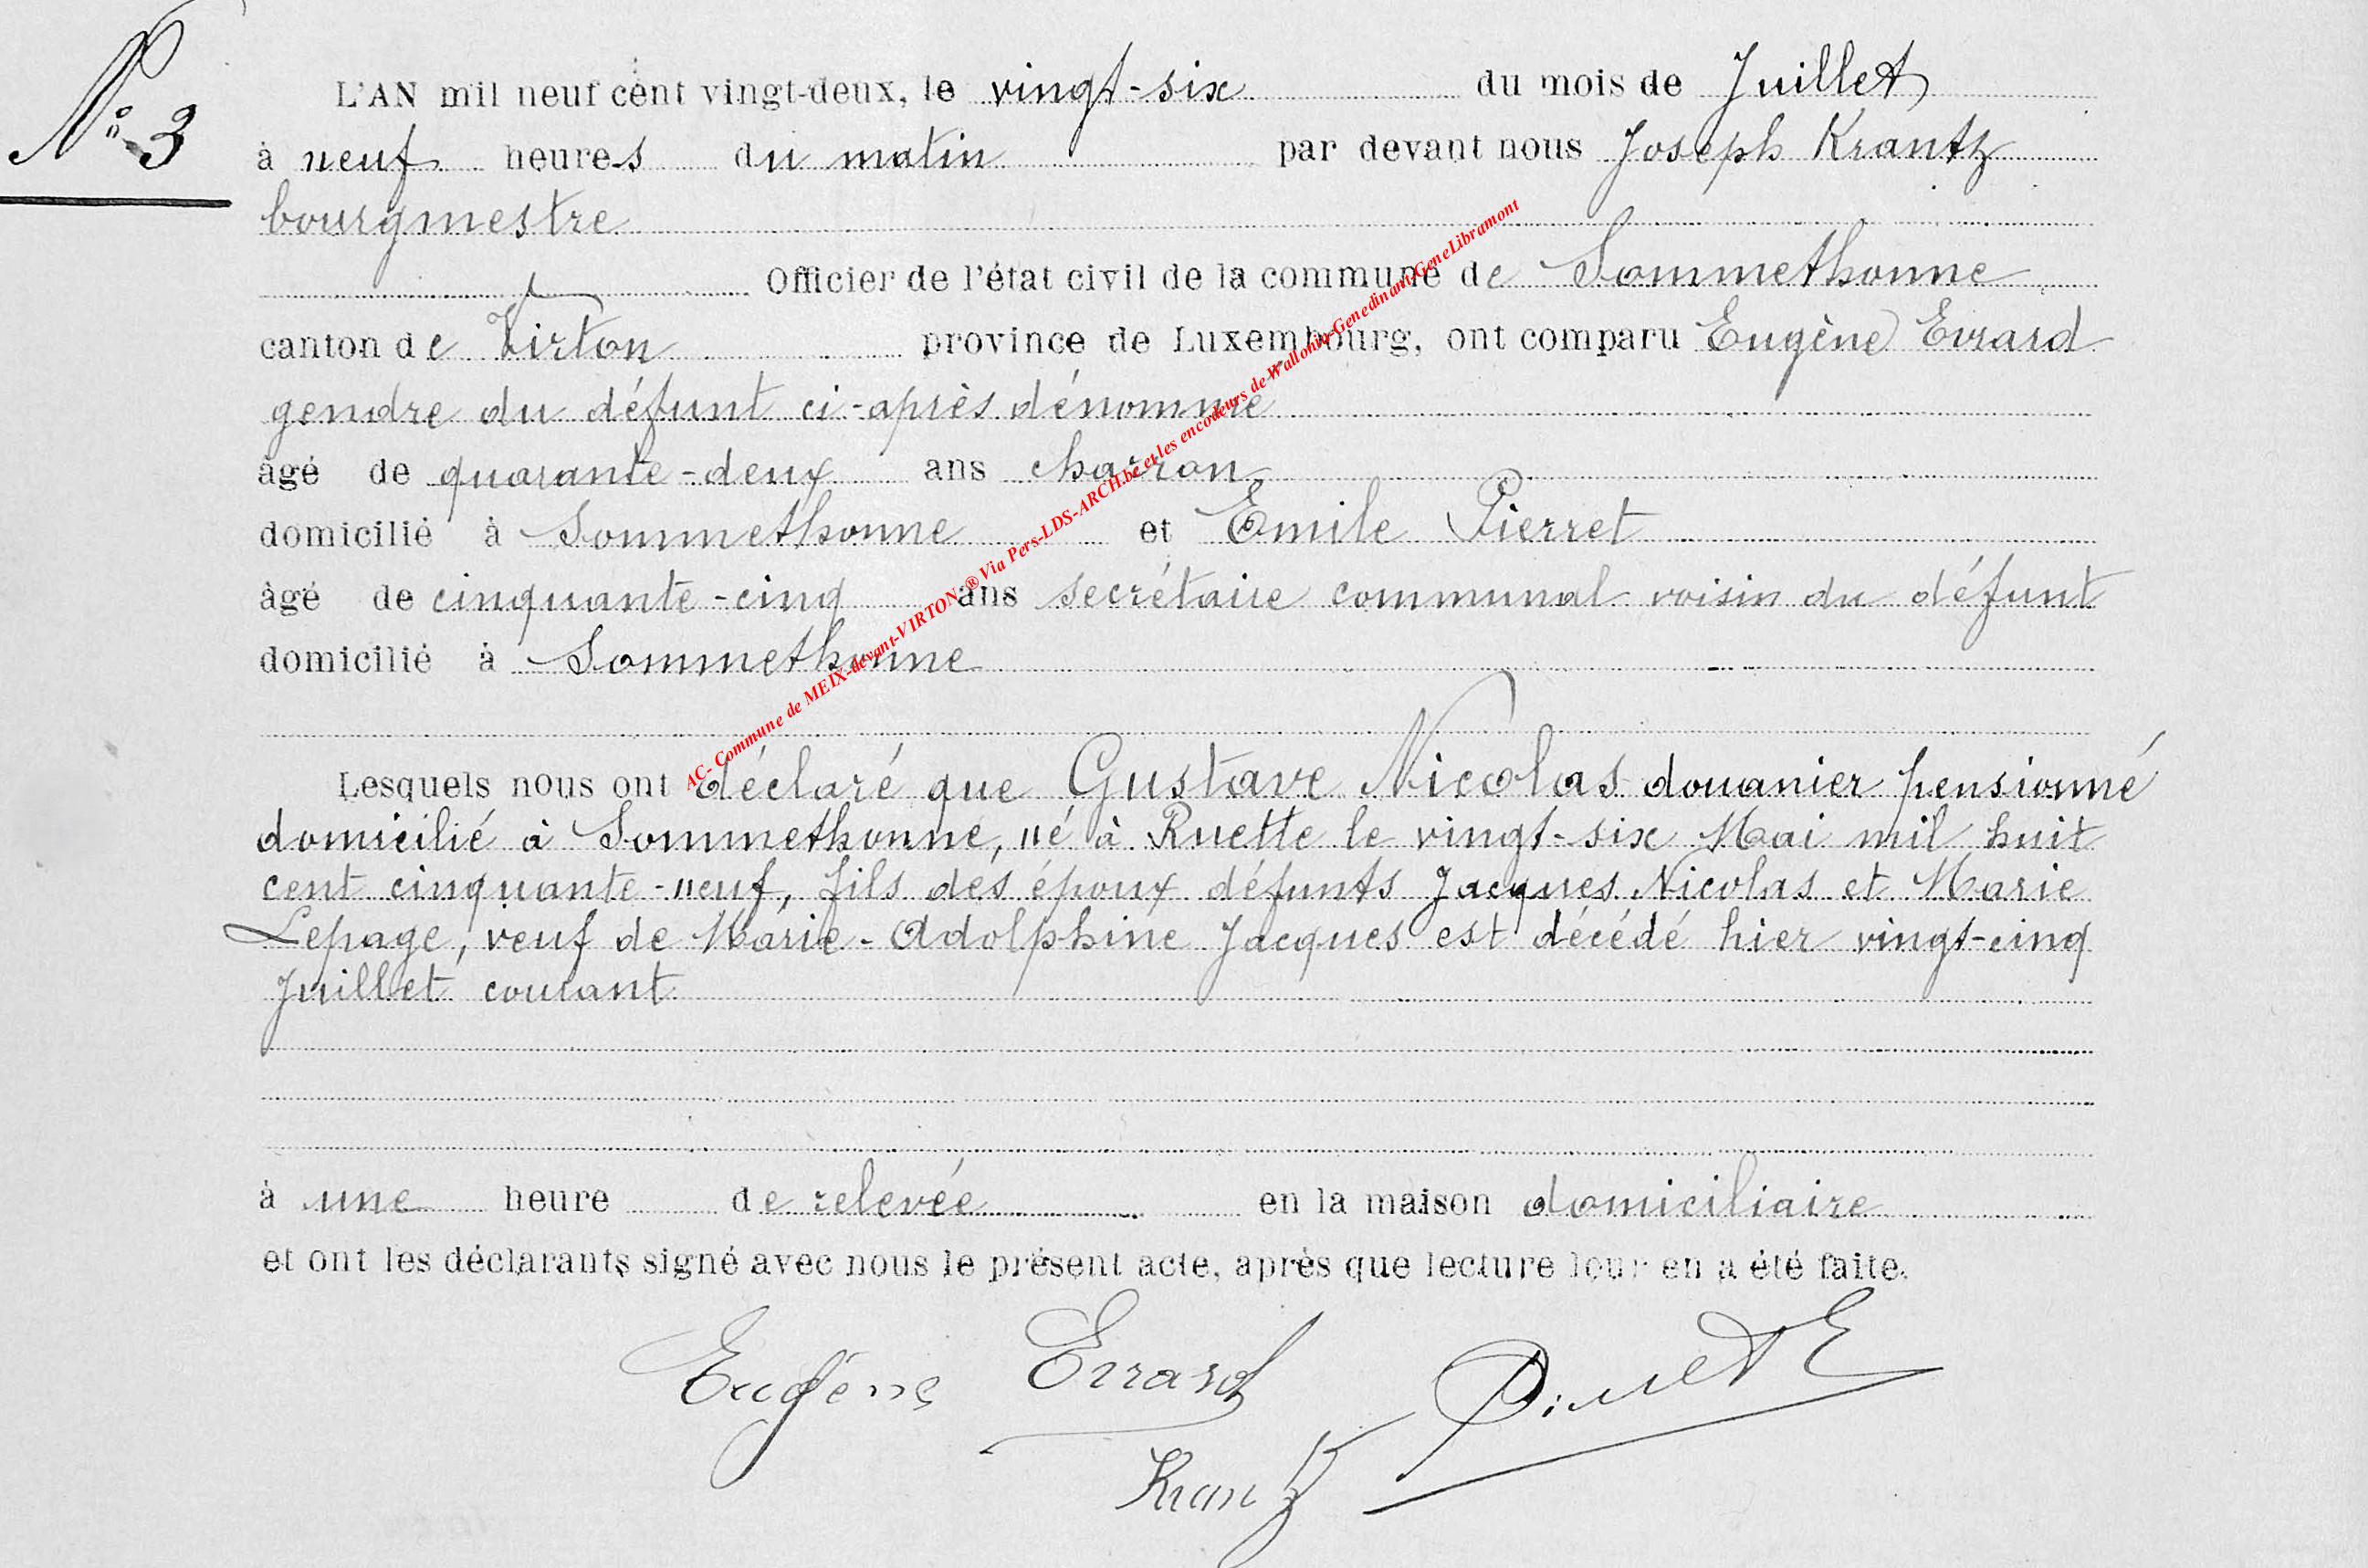 N° 3
L'AN mil neuf cent vingt-deux, le vingt-six du mois de Juillet
à neuf heures du matin par devant nous Joseph Krantz
bourgmestre
Officier de l'état civil de la commune de Sommethonne
canton de Virton province de Luxembourg, ont comparu Eugène Evrard
gendre du défunt ci-après dénommé
âgé de quarante-deux ans charron
domicilié à Sommethonne et Emile Pierret
âgé de cinquante-cinq ans secrétaire communal voisin du défunt
domicilié à Sommethonne
Lesquels nous ont déclaré que Gustave Nicolas douanier pensionné
domicilié à Sommethonne, né à Ruette le vingt-six Mai mil huit
cent cinquante-neuf, fils des époux défunts Jacques Nicolas et Marie
Lepage, veuf de Marie-Adolphine Jacques est décédé hier vingt-cinq
Juillet courant
à une heure de relevée en la maison domiciliaire
et ont les déclarants signé avec nous le présent acte, après que lecture leur en a été faite.
Eugène Evrard Pierret E
Krantz
AC- Commune de MEIX-devant-VIRTON ® Via Pers-LDS-ARCH.be et les encodeurs de Wallonia-Genedinant-GeneLibramont